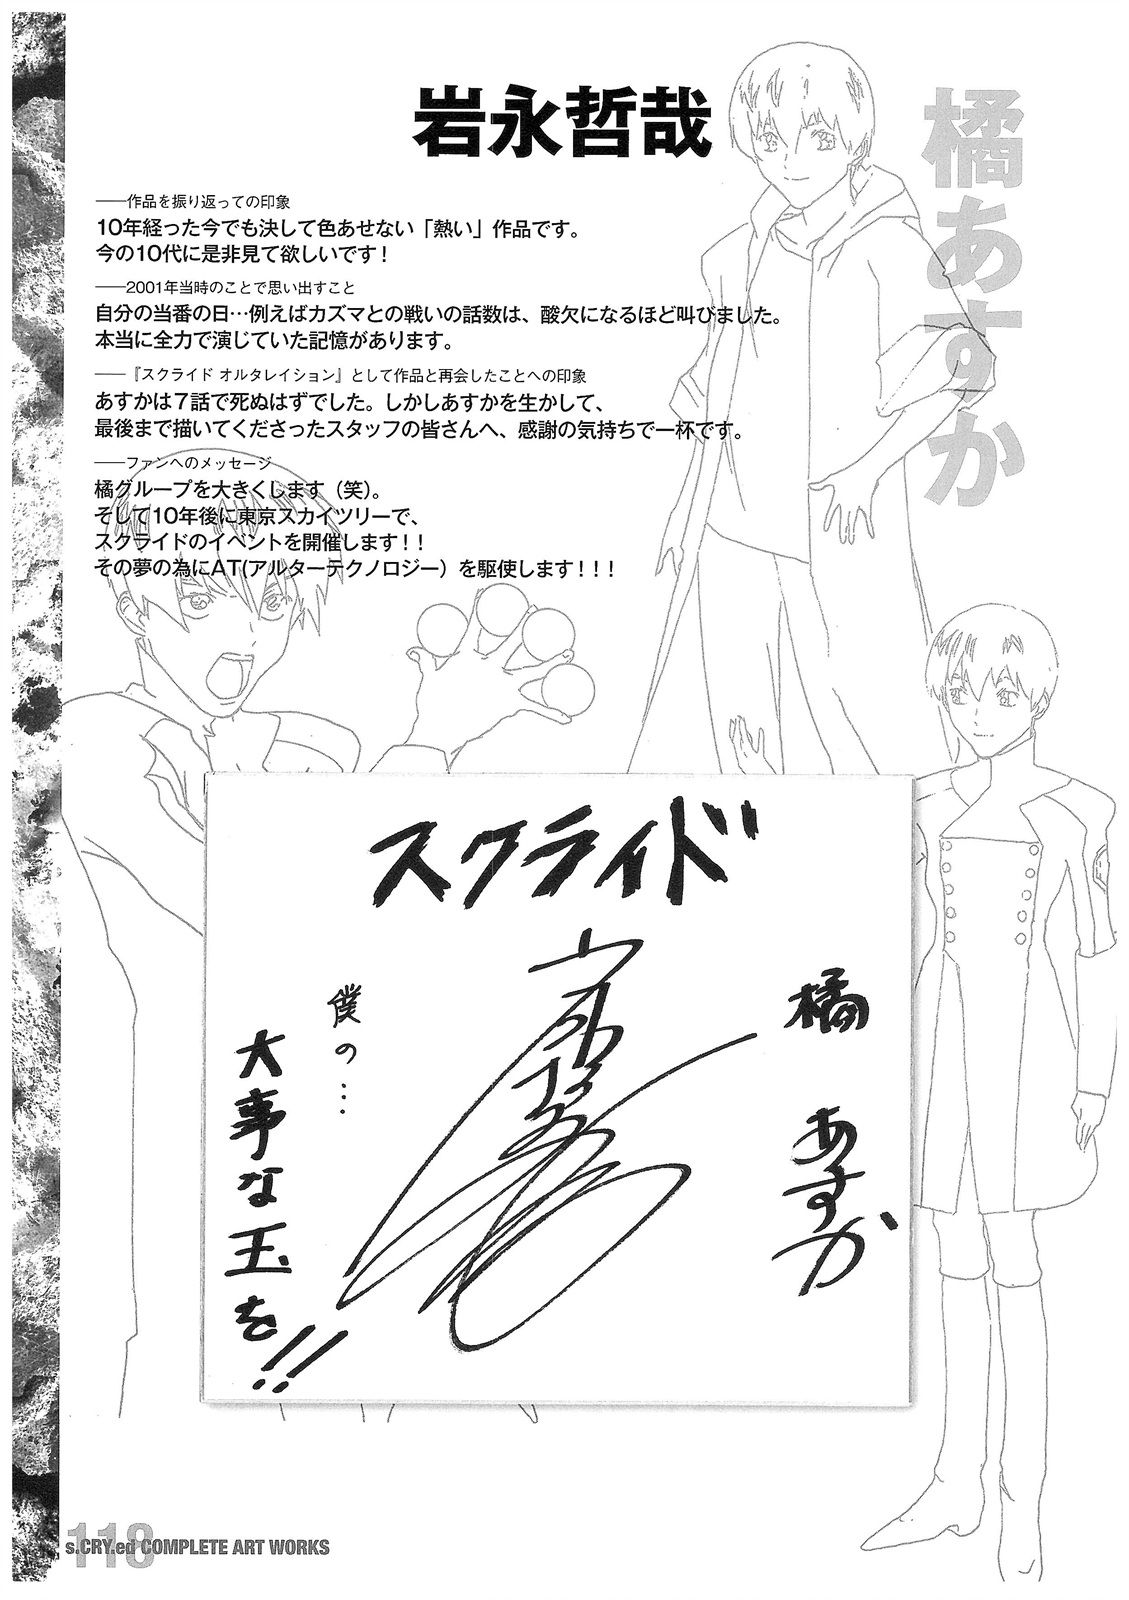 岩永哲哉
橘あすか
──作品を振り返っての印象
10年経った今でも決して色あせない「熱い」作品です。
今の10代に是非見て欲しいです！
──2001年当時のことで思い出すこと
自分の当番の日…例えばカズマとの戦いの話数は、酸欠になるほど叫びました。
本当に全力で演じていた記憶があります。
──『スクライド オルタレイション』として作品と再会したことへの印象
あすかは７話で死ぬはずでした。しかしあすかを生かして、
最後まで描いてくださったスタッフの皆さんへ、感謝の気持ちで一杯です。
──ファンへのメッセージ
橘グループを大きくします（笑）。
そして10年後に東京スカイツリーで、
スクライドのイベントを開催します！！
その夢の為にAT(アルターテクノロジー）を駆使します！！！
スクライド
橘 あすか
僕の…
大事な玉を!!
118
s.CRY.ed COMPLETE ART WORKS